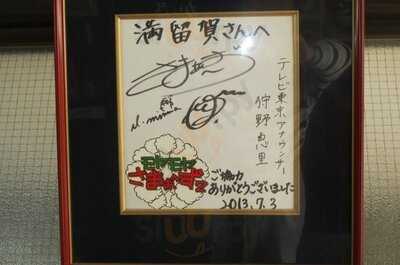 満留賀さんへ
テレビ東京アナウンサー
狩野恵里
モヤモヤ
さまぁ〜ず2
ご協力
ありがとうございました
2013.7.3